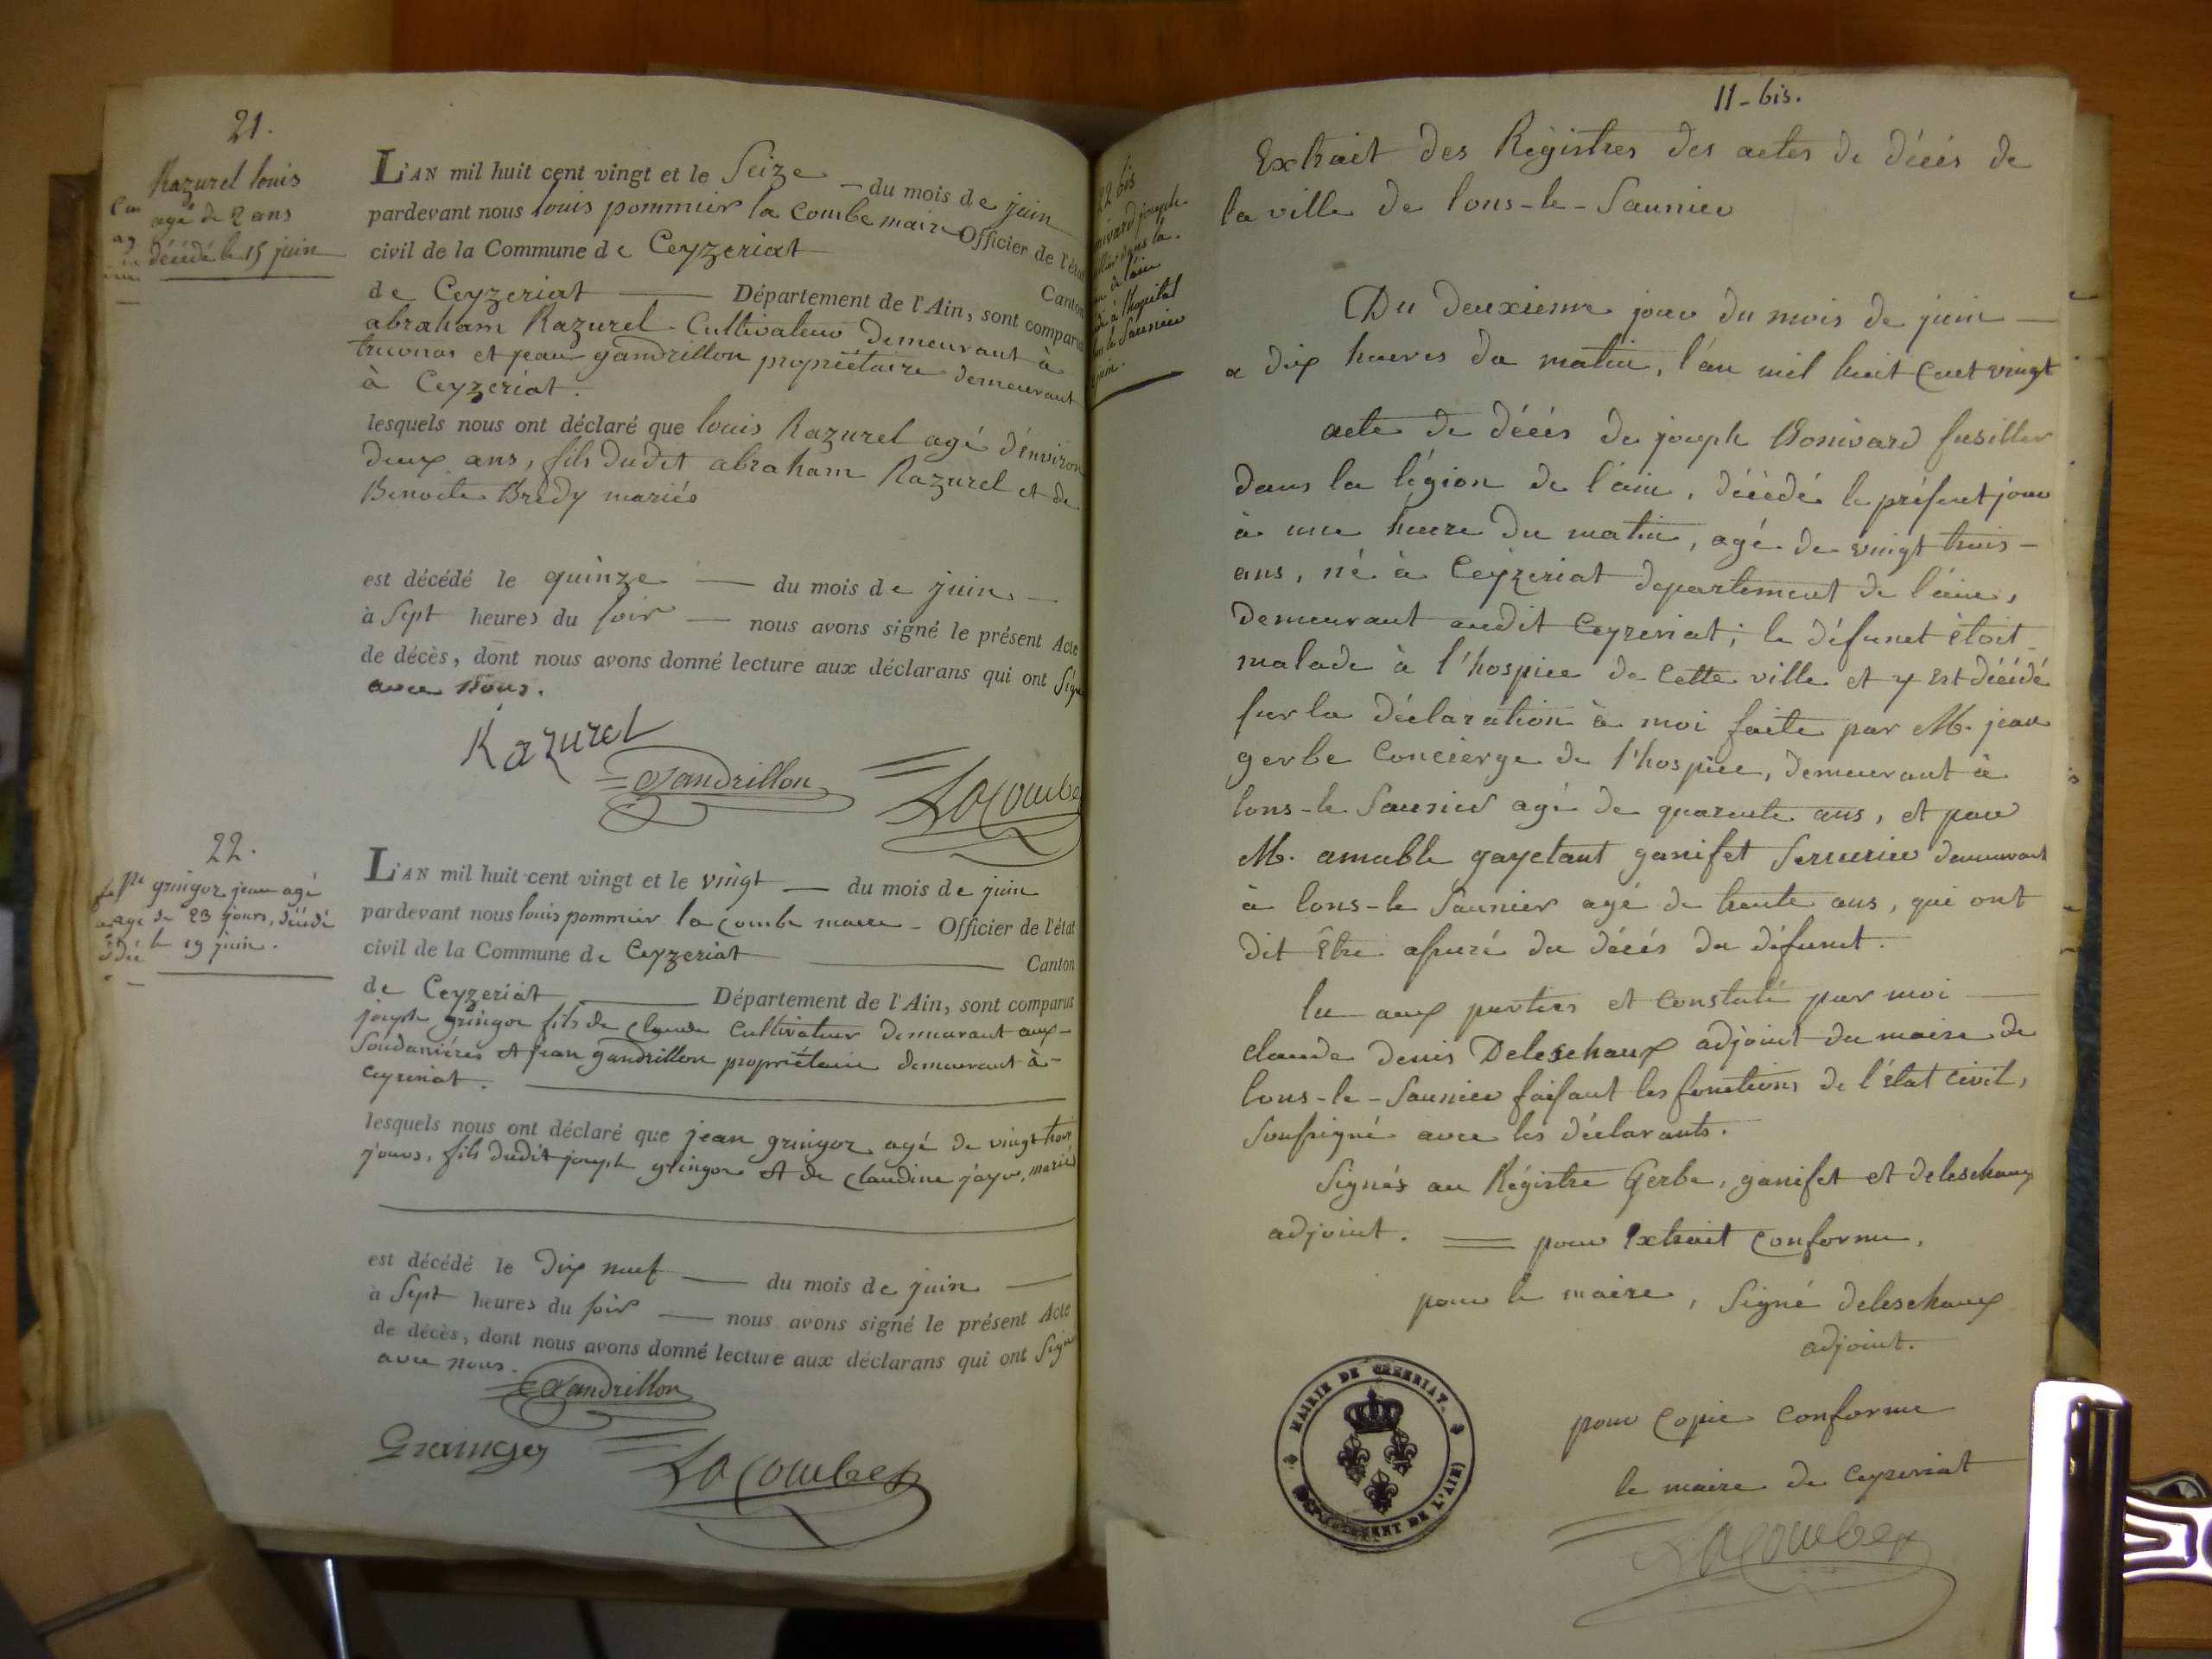 21.
Razurel louis
agé de 2 ans
décédé le 15 juin
L'AN mil huit cent vingt et le Seize — du mois de juin
pardevant nous louis pommier la Combe maire Officier de l'état
civil de la Commune de Ceyzeriat Canton
de Ceyzeriat — Département de l'Ain, sont comparus
abraham Razurel Cultivateur Demeurant à
et jean gandrillon propriétaire demeurant
à Ceyzeriat.
lesquels nous ont déclaré que louis Razurel agé d'environ
deux ans, fils dudit abraham Razurel et de
Benoite Bredy mariés
est décédé le quinze — du mois de juin —
à Sept heures du soir — nous avons signé le présent Acte
de décès, dont nous avons donné lecture aux déclarans qui ont signé
avec Nous.
Razurel
Gandrillon
Lacombe
22.
gringoz jean agé
agé de 23 jours, décédé
le 19 juin.
L'AN mil huit cent vingt et le vingt — du mois de juin
pardevant nous louis pommier la Combe maire - Officier de l'état
civil de la Commune de Ceyzeriat — Canton
de Ceyzeriat — Département de l'Ain, sont comparus
joseph gringoz fils de claude Cultivateur Demeurant aux-
Soudanières et jean gandrillon propriétaire demeurant à-
Ceyzeriat. —
lesquels nous ont déclaré que jean gringoz agé de vingt trois
jours, fils dudit joseph gringoz et de Claudine jayr, mariés
est décédé le dix neuf — du mois de juin —
à Sept heures du soir — nous avons signé le présent Acte
de décès, dont nous avons donné lecture aux déclarans qui ont signé
avec nous.
Gandrillon
Lacombe
11-bis.
22 bis
joseph
dans la
de l'ain
à l'hopital
le Saunier
juin.
Extrait des Régistres des actes de décés de
la ville de lons-le-Saunier
Du deuxieme jour du mois de juin —
a dix heures du matin, l'an mil huit Cent vingt
acte de décés de joseph Bonivard fusillier
dans la légion de l'ain, décédé le présent jour
à une heure du matin, agé de vingt trois-
ans, né à Ceyzeriat departement de l'ain,
demeurant audit Ceyzeriat; le défunct étoit
malade à l'hospice de Cette ville et y est décédé
sur la déclaration à moi faite par M. jean
gerbe Concierge de l'hospice, demeurant à
lons-le Saunier agé de quarente ans, et par
M. amable gayetant ganifet Serrurier demeurant
à lons-le Saunier agé de trente ans, qui ont
dit être assuré du décés du défunct.
lu aux parties et Constaté par moi —
claude denis Deleschaux adjoint du maire de
lons-le-Saunier faisant les fonctions de l'état civil,
Soussigné avec les déclarants.
Signés au Régistre Gerbe, ganifet et deleschaux
adjoint. = pour Extrait Conforme,
pour le maire, Signé deleschaux
adjoint.
MAIRIE DE CEZERIAT.
DEPARTEMENT DE L'AIN)
pour Copie Conforme
le maire de Ceyzeriat
Lacombe